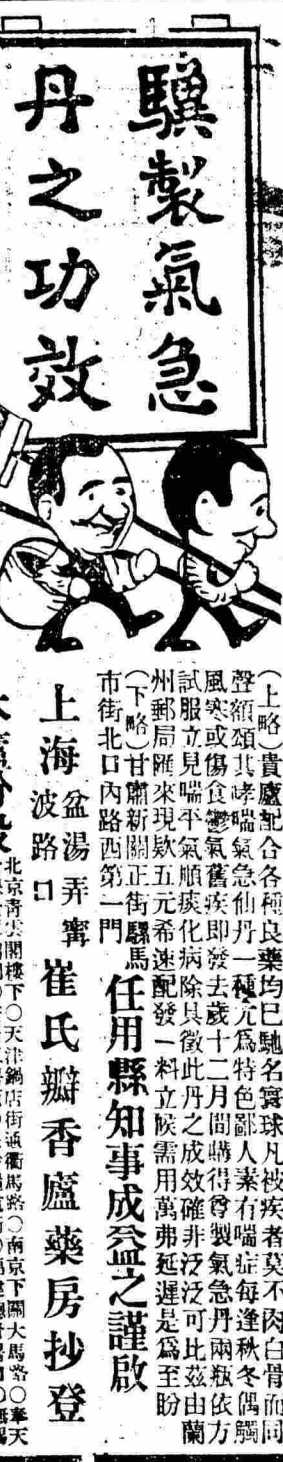 驥製氣急
丹之功效
(上略)貴廬配合各種良藥均已馳名寰球凡被疾者莫不肉白骨而同
聲額頌其哮喘氣急仙丹一種尤爲特色鄙人素有喘症每逢秋冬偶觸
風寒或傷食鬱氣舊疾卽發去歲十二月間購得尊製氣急丹兩瓶依方
試服立見喘平氣順痰化病除具徵此丹之成效確非泛泛可比茲由蘭
州郵局匯來現欵五元希速配發一料立候需用萬弗延遲是爲至盼
(下略)甘肅新關正街騾馬
市街北口內路西第一門
任用縣知事成益之謹啟
上海
盆湯弄寗
波路口
崔氏瓣香廬藥房抄登
北京青雲閣樓下〇天津鍋店街通衢馬路〇南京下關大馬路〇奉天